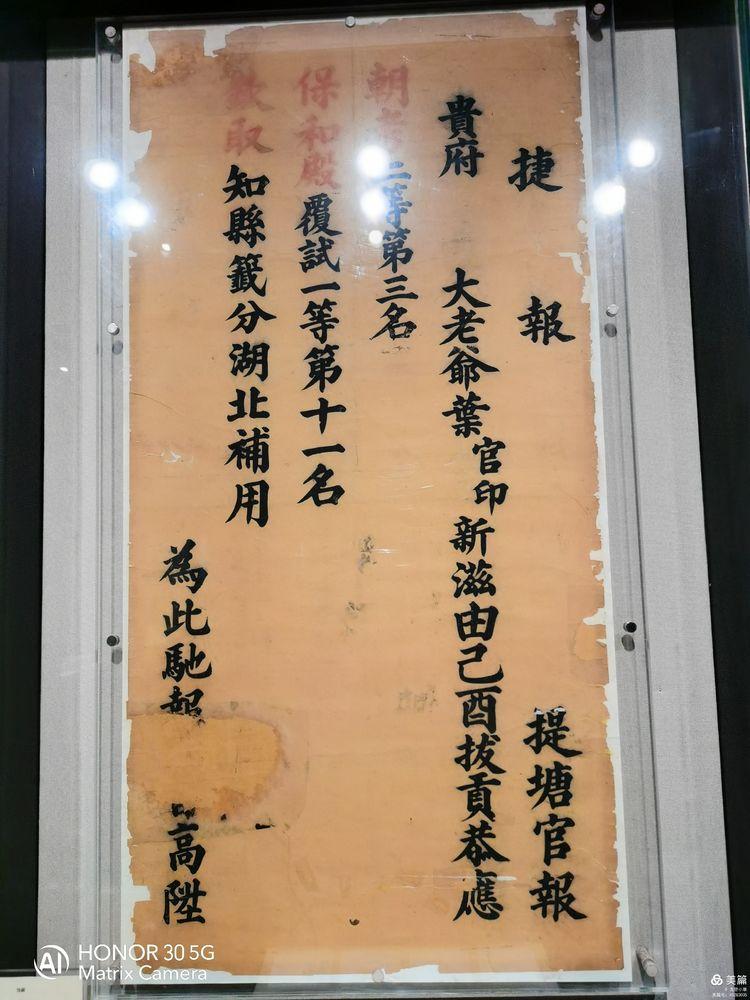 捷報 提塘官報
貴府 大老爺葉官印新滋由己酉拔貢恭應
朝考二等第三名
保和殿覆試一等第十一名
欽取知縣籤分湖北補用
為此馳報 高陞
AI HONOR 30 5G
Matrix Camera
美篇